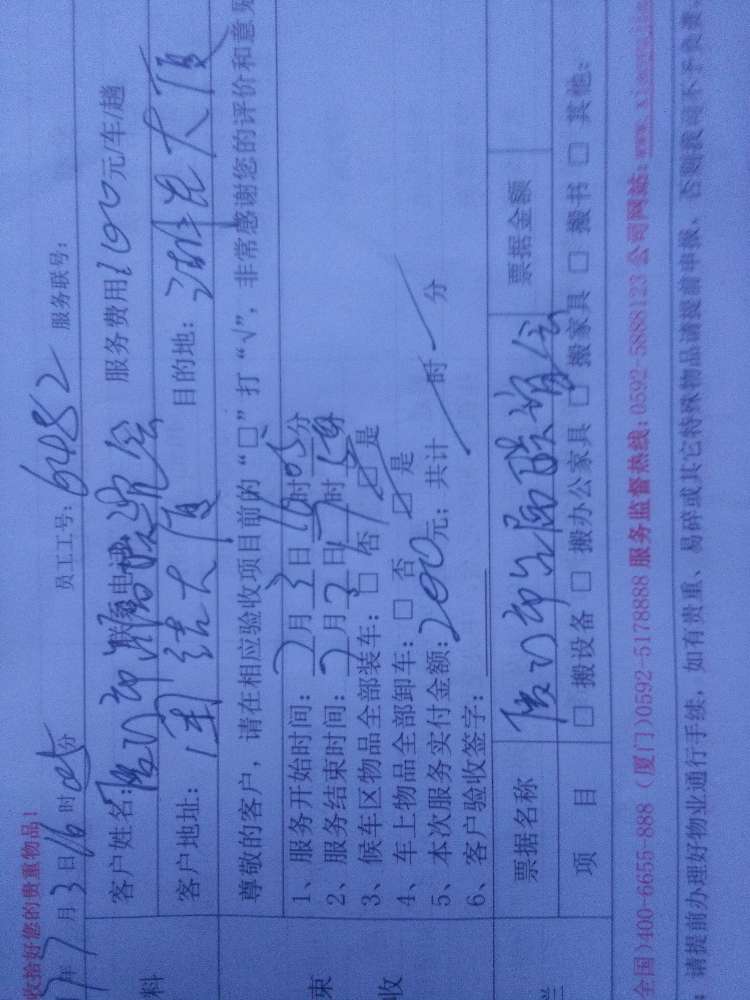 收拾好您的贵重物品!
年7月3日16时05分 员工工号: 6482 服务联号:
客户姓名: 厦门市 联系电话: 服务费用: 100元/车/趟
客户地址: 团结大厦 目的地: 大厦
尊敬的客户, 请在相应验收项目前的“□”打“√”, 非常感谢您的评价和意见
1、服务开始时间: 7月3日16时05分
2、服务结束时间: 7月3日17时50分
3、候车区物品全部装车: □ 否 ☑ 是
4、车上物品全部卸车: □ 否 ☑ 是
5、本次服务实付金额: 200元; 共计 时 分
6、客户验收签字:
票据名称 厦门市 联谊会 票据金额
项 目 □ 搬设备 □ 搬办公家具 □ 搬家具 □ 搬书 □ 其他:
全国)400-6655-888 (厦门)0592-5178888 服务监督热线: 0592-5888123 公司网站:
: 请提前办理好物业通行手续, 如有贵重、易碎或其它特殊物品请提前申报, 否则我司不予负责.
料
束
收